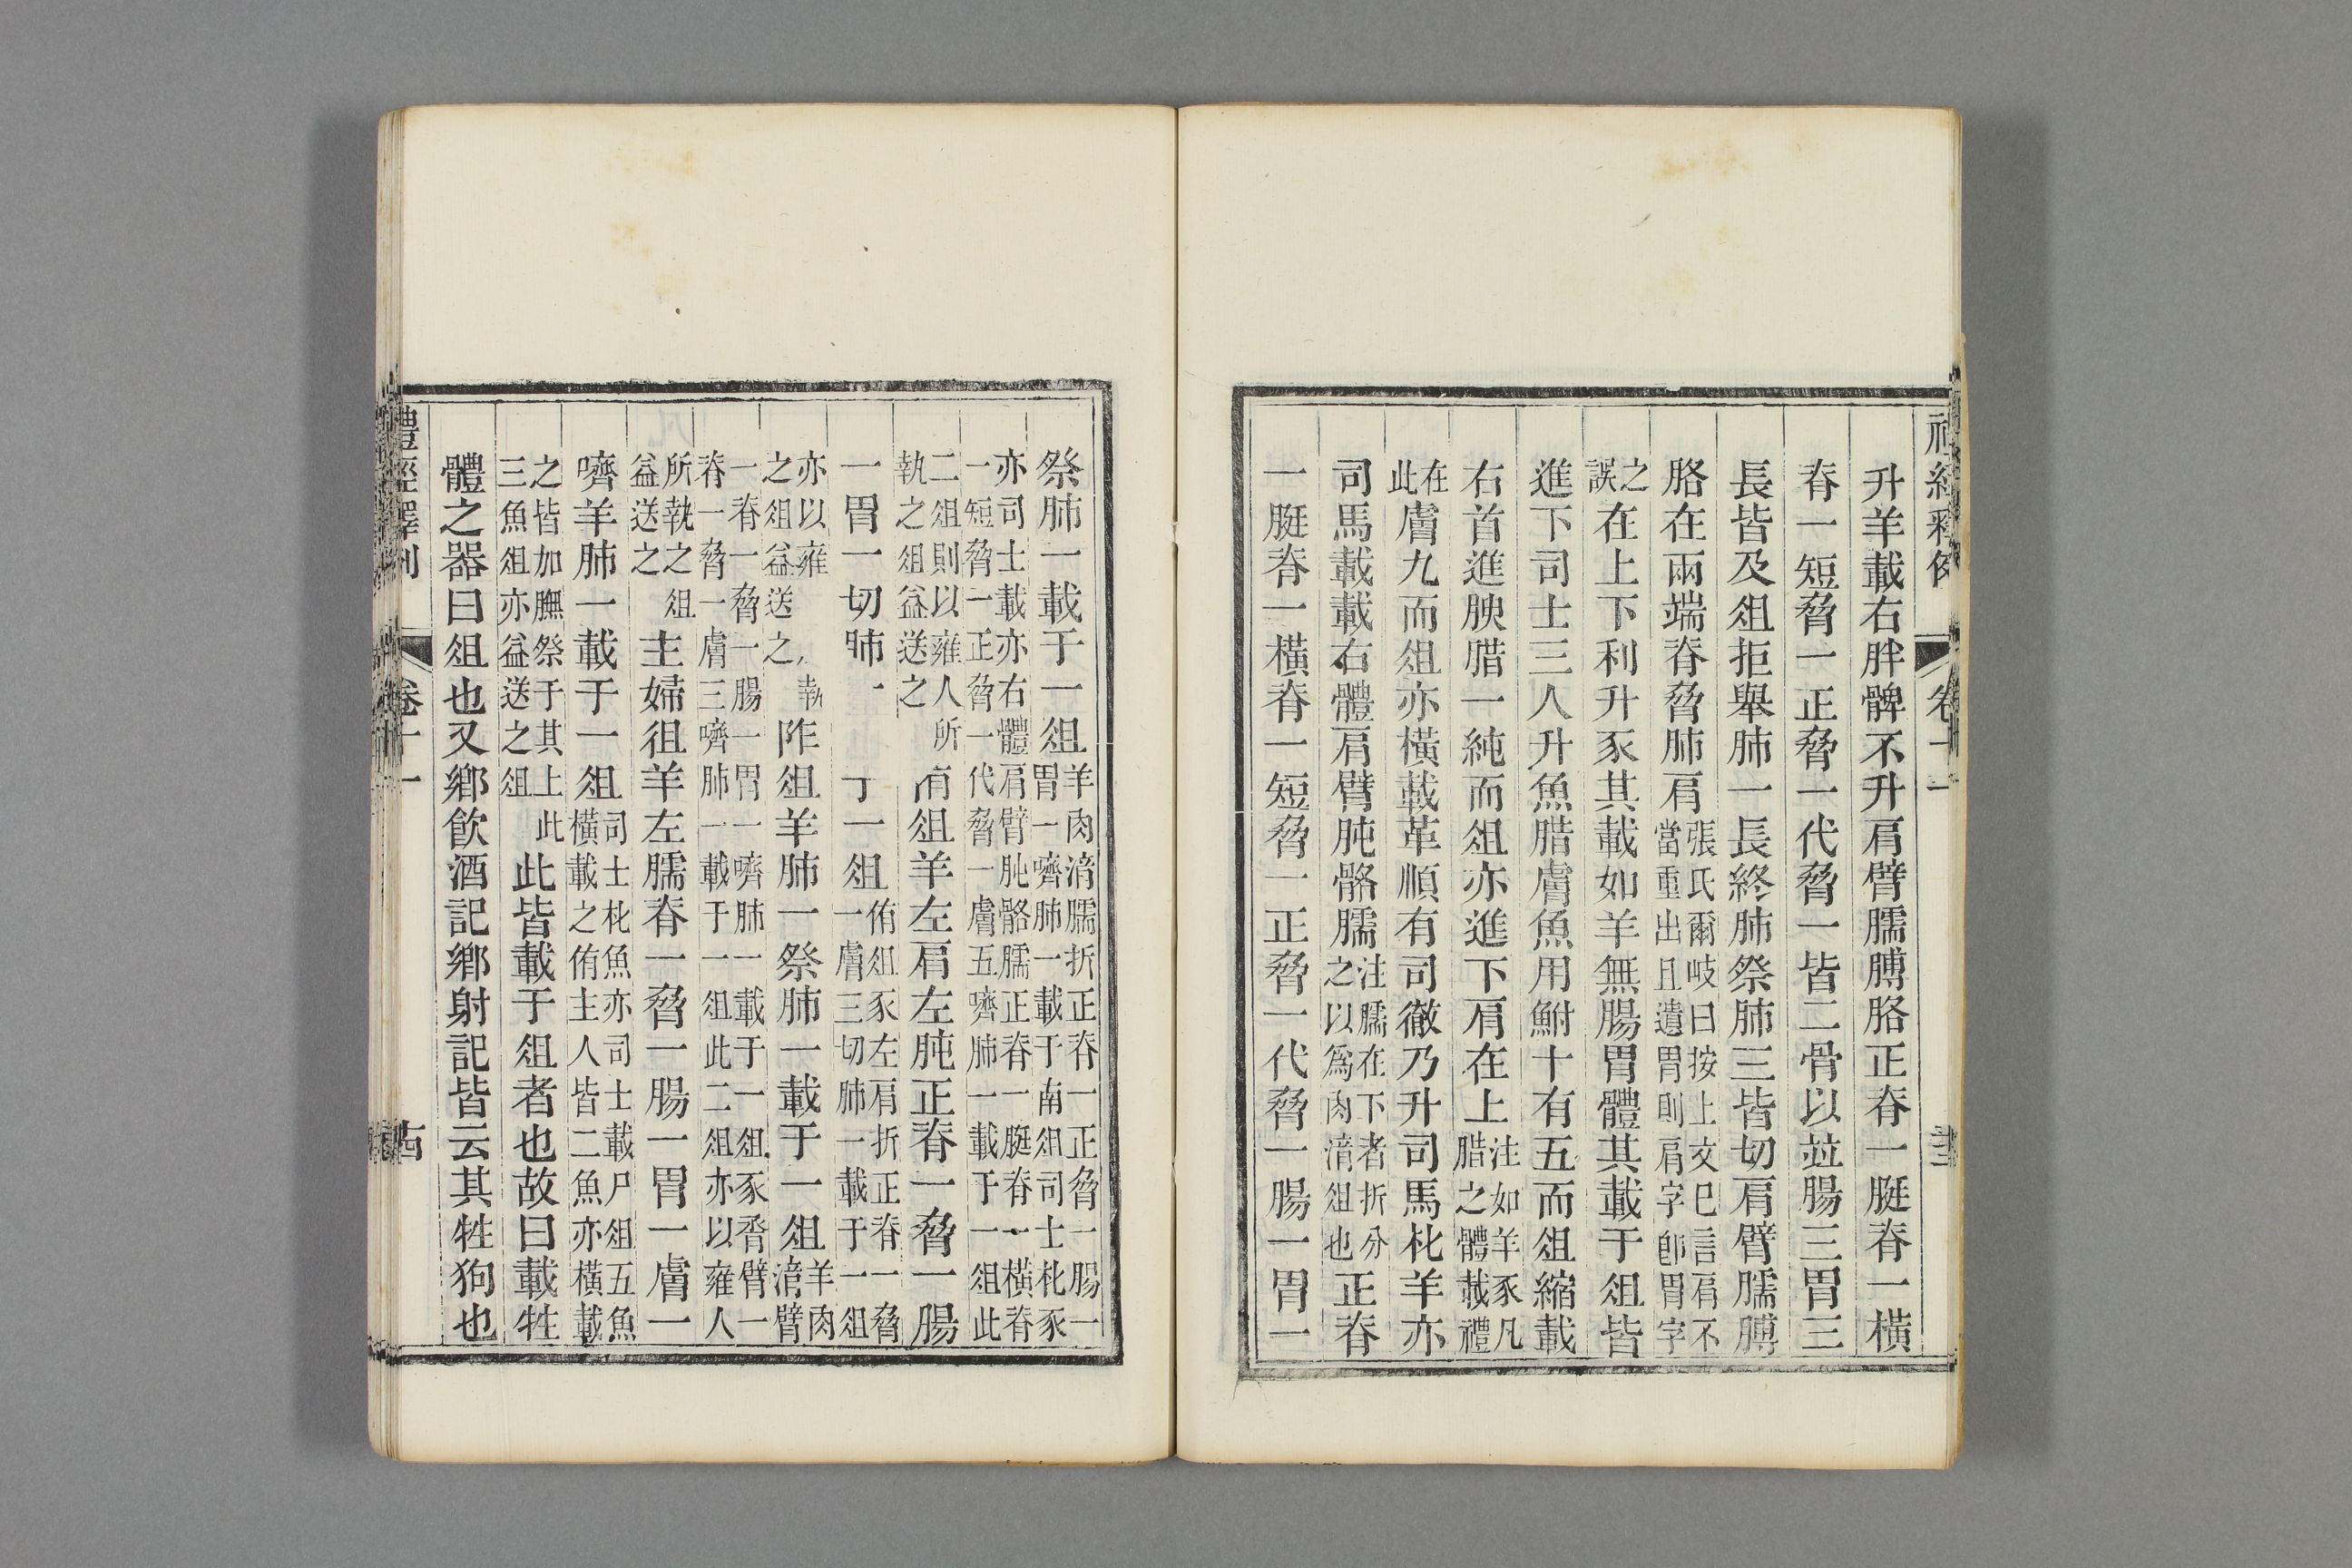 升羊載右胖髀不升肩臂臑膊胳正脊一脡脊一橫
脊一短脅一正脅一代脅一皆二骨以並腸三胃三
長皆及俎拒舉肺一長終肺祭肺三皆切肩臂臑膊
胳在兩端脊脅肺肩張氏爾岐曰按上文已言肩不當重出且遺胃則肩字卽胃字
之誤在上下利升豕其載如羊無腸胃體其載于俎皆
進下司士三人升魚腊膚魚用鮒十有五而俎縮載
右首進腴腊一純而俎亦進下肩在上注如羊豕凡腊之體載禮
在此膚九而俎亦橫載革順有司徹乃升司馬朼羊亦
司馬載載右體肩臂肫骼臑注臑在下者折分之以爲肉湆俎也正脊
一脡脊一橫脊一短脅一正脅一代脅一腸一胃一
祭肺一載于一俎羊肉湆臑折正脊一正脅一腸一胃一嚌肺一載于南俎司士朼豕
亦司士載亦右體肩臂肫骼臑正脊一脡脊一橫脊一短脅一正脅一代脅一膚五嚌肺一載于一俎此
二俎則以雍人所執之俎益送之俎羊左肩左肫正脊一脅一腸
一胃一切肺一一俎侑俎豕左肩折正脊一脅一膚三切肺一載于一俎
亦以雍執之俎益送之阼俎羊肺一祭肺一載于一俎羊肉湆臂
一脊一脅一腸一胃一嚌肺一載于一俎豕脀臂一脊一脅一膚三嚌肺一載于一俎此二俎亦以雍人
所執之俎益送之主婦俎羊左臑脊一脅一腸一胃一膚一
嚌羊肺一載于一俎司士朼魚亦司士載尸俎五魚橫載之侑主人皆二魚亦橫載
之皆加膴祭于其上此三魚俎亦益送之俎此皆載于俎者也故曰載牲
體之器曰俎也又鄉飲酒記鄉射記皆云其牲狗也
禮經釋例 卷十一